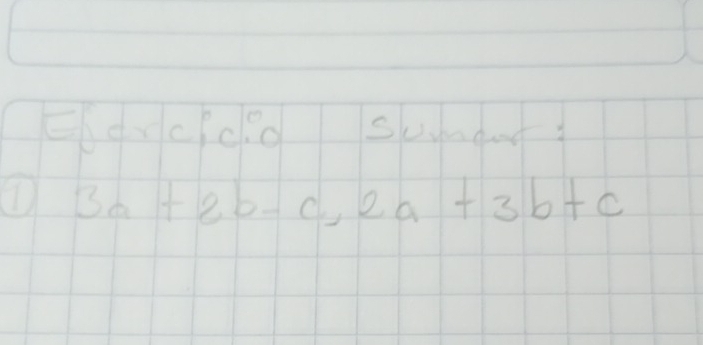 Ejercicio Sumar:
① 3a + 2b - c, 2a + 3b + c